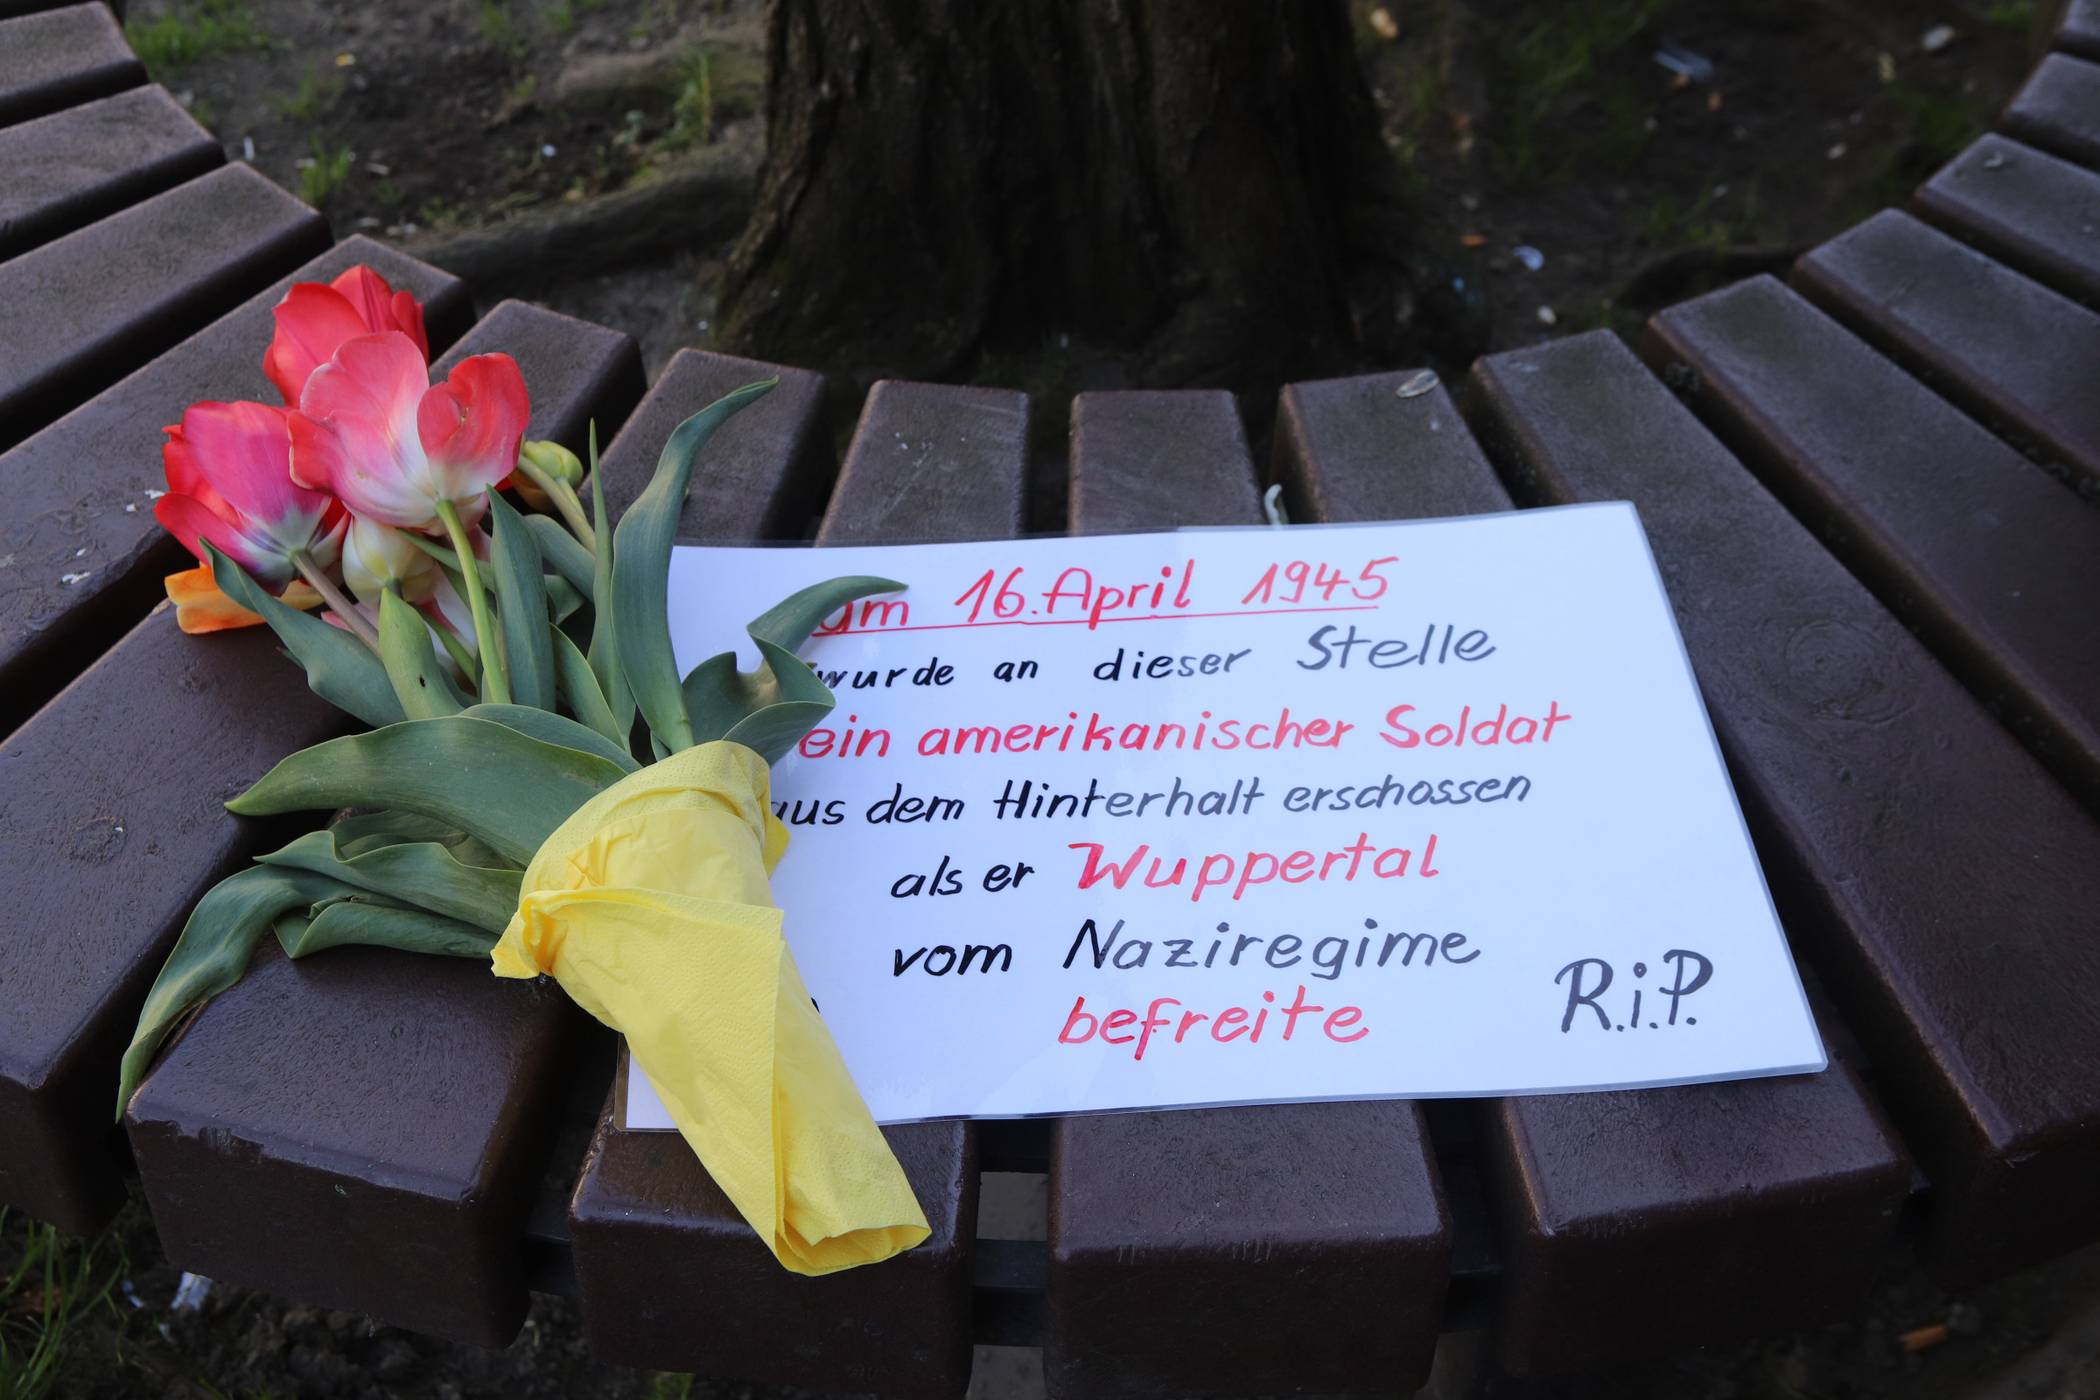 am 16.April 1945
wurde an dieser Stelle
ein amerikanischer Soldat
aus dem Hinterhalt erschossen
als er Wuppertal
vom Naziregime
befreite
R.i.P.